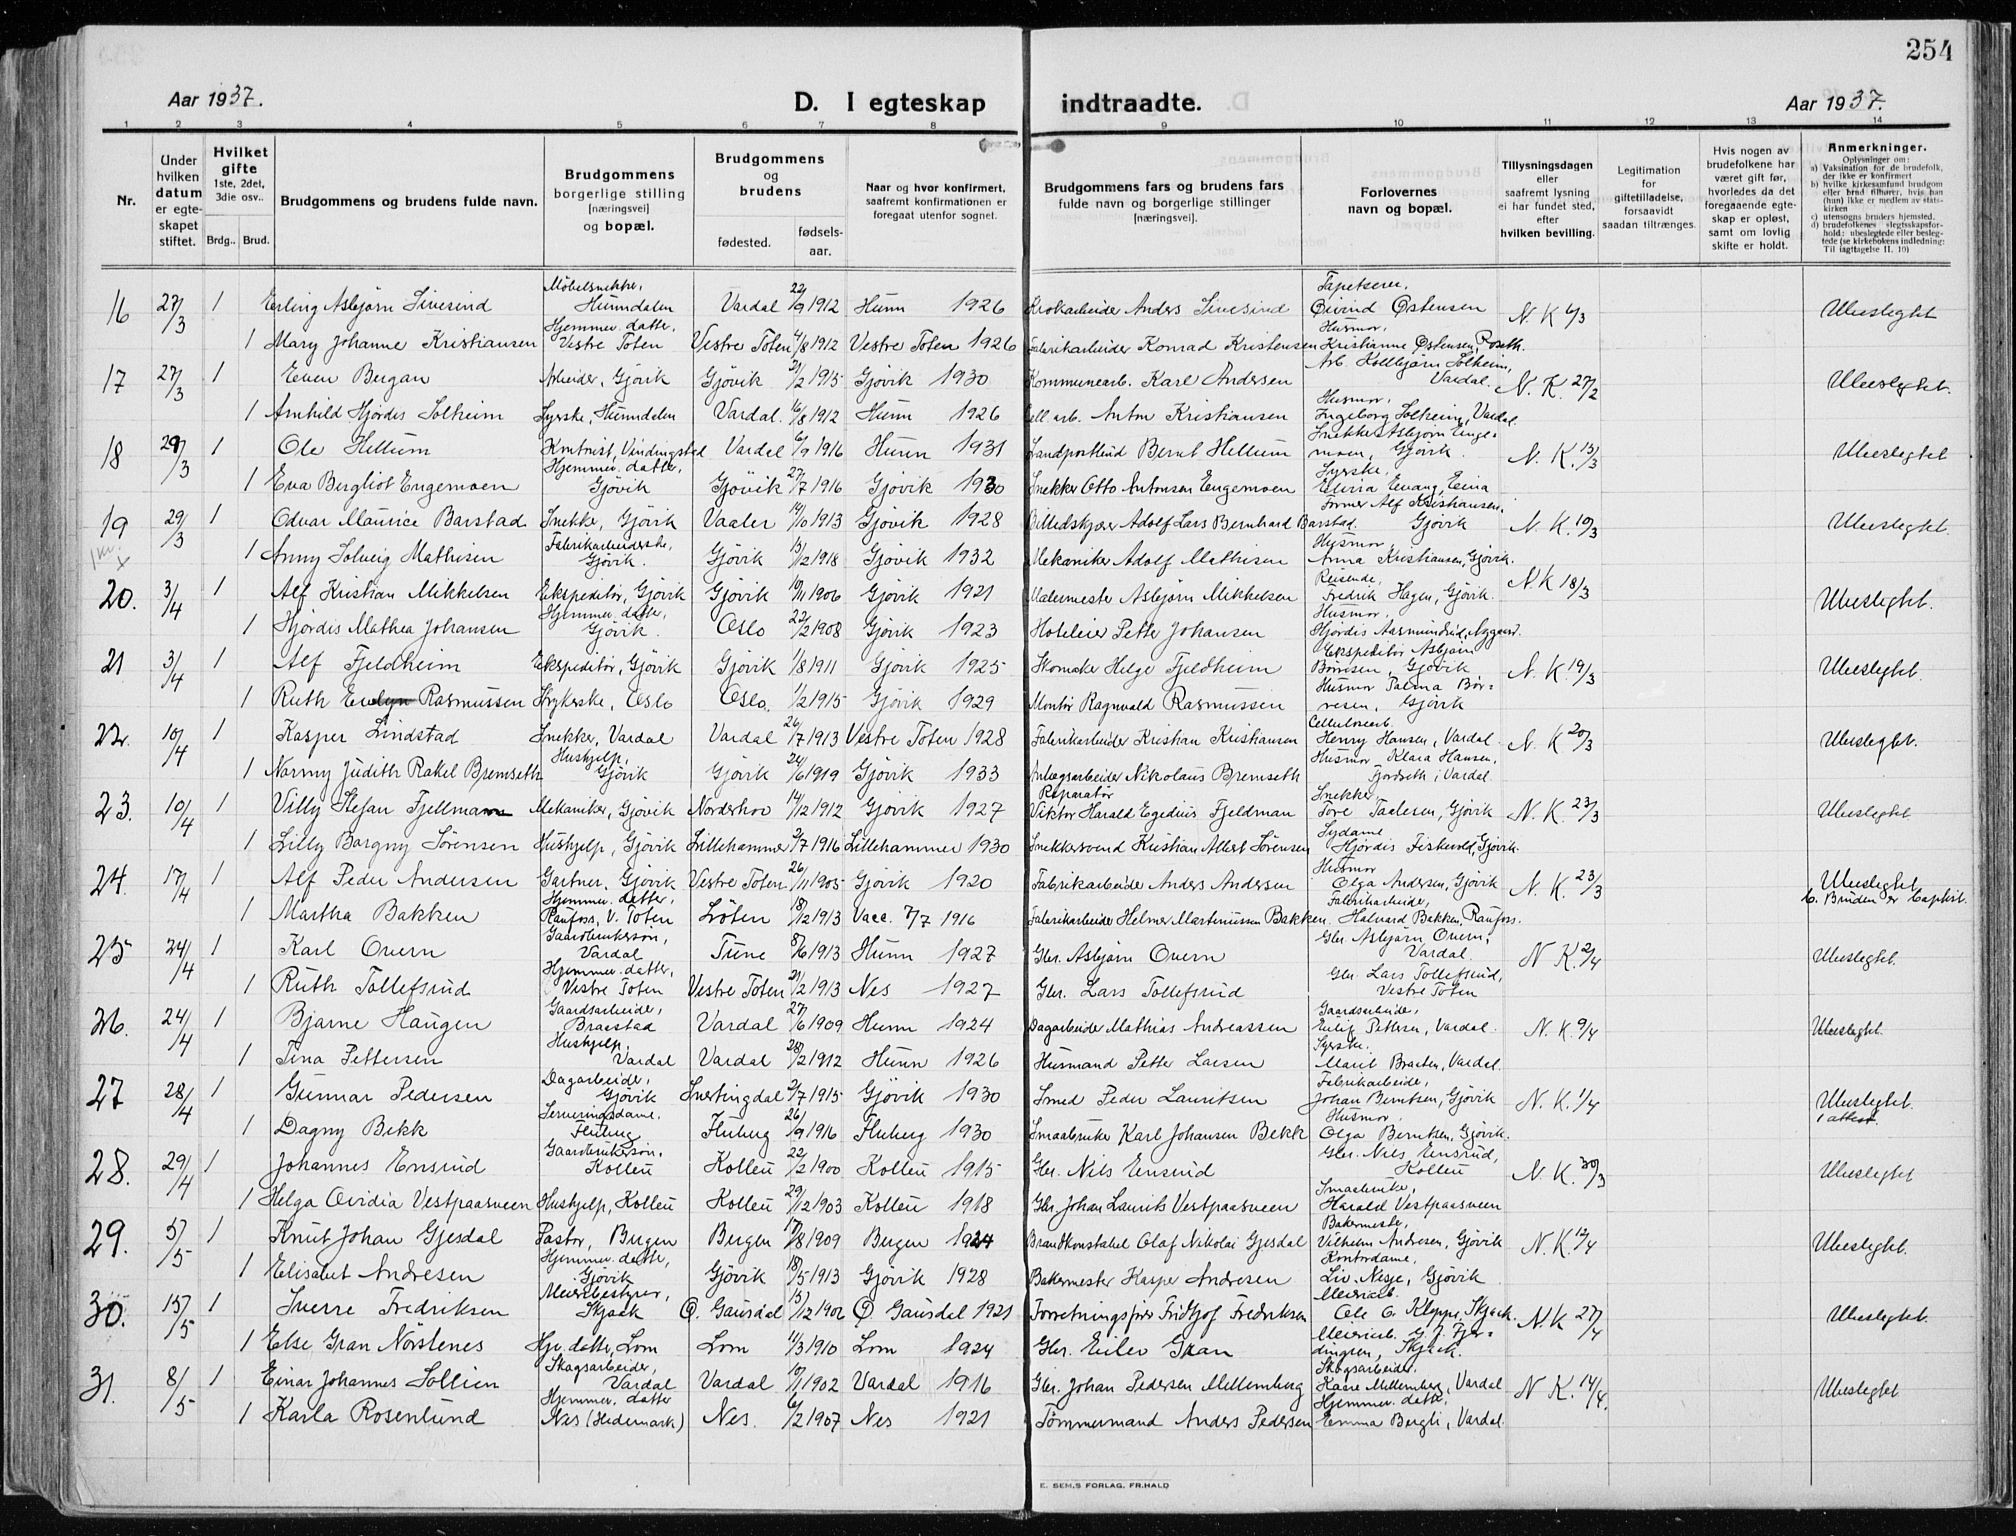 254
Aar 1937.
D. I egteskap indtraadte.
Aar 1937.
1 2 3 4 5 6 7 8 9 10 11 12 13 14
Nr.
Under hvilken datum er egteskapet stiftet.
Hvilket gifte 1ste, 2det, 3die osv..
Brdg.. Brud.
Brudgommens og brudens fulde navn.
Brudgommens borgerlige stilling [næringsvei] og bopæl.
Brudgommens og brudens
fødested.
fødselsaar.
Naar og hvor konfirmert, saafremt konfirmationen er foregaat utenfor sognet.
Brudgommens fars og brudens fars fulde navn og borgerlige stillinger [næringsvei].
Forlovernes navn og bopæl.
Tillysningsdagen eller saafremt lysning ei har fundet sted, efter hvilken bevilling.
Legitimation for giftetilladelse, forsaavidt saadan tiltrænges.
Hvis nogen av brudefolkene har været gift før, hvorledes da det foregaaende egteskap er opløst, samt om lovlig skifte er holdt.
Anmerkninger.
Oplysninger om:
a) Vaksination for de brudefolk, der ikke er konfirmert
b) hvilke kirkesamfund brudgom eller brud tilhører, hvis han (hun) ikke er medlem av statskirken
c) utensogns bruders hjemsted.
d) brudefolkenes slegtskapsforhold: ubeslegtede eller beslegtede (se kirkebokens indledning: Til iagttagelse II. 10)
16 27/3 1 Erling Asbjørn Sivesind Møbelsnekker, Hunndalen Vardal 22/9 1912 Hunn 1926 Krokarbeider Anders Sivesind Tapetserer, Øivind Østensen N. K 6/3 Ubeslegtet
1 Mary Johanne Kristiansen Hjemmev. datter, Vestre Toten Vestre Toten 4/8 1912 Vestre Toten 1926 Fabrikarbeider Konrad Kristensen Husmor, Kristianne Østensen,
17 27/3 1 Even Bergan Arbeider, Gjövik Gjövik 21/2 1915 Gjøvik 1930 Kommunearb. Karl Andersen Arb. Kolbjørn Solheim, Vardal. N. K. 27/2 Ubeslegtet.
1 Arnhild Hjördis Solheim Syerske, Hunndalen Vardal. 6/8 1912 Hunn 1926 Cell. arb. Anton Kristiansen Husmor, Ingeborg Solheim, Vardal.
18 29/3 1 Ole Hellum Kontorist, Vindingstad Vardal 6/9 1916 Hunn 1931 Landpostbud Bernt Hellum Snekker Asbjørn Engemoen, Gjøvik. N. K. 13/3 Ubeslegtet
1 Eva Bergliot Engemoen Hjemmev. datter, Gjøvik Gjövik 27/7 1916 Gjövik 1930 Snekker Otto Antonsen Engemoen Syerske,
19 29/3 1 Odvar Maurice Barstad Snekker, Gjövik Vaaler 14/10 1913 Gjøvik 1928 Billedskjærer Adolf Lars Bernhard Barstad. Former Alf Kristiansen, Gjövik N. K. 19/3 Ubeslegtet.
1 Anny Solveig Mathisen Fabrikarbeiderske, Gjövik. Gjövik 13/12 1918 Gjövik 1932 Mekaniker Adolf Mathisen Husmor, Anna Kristiansen, Gjövik.
20. 3/4 1 Alf Kristian Mikkelsen Ekspeditør, Gjövik Gjövik 10/11 1906 Gjövik 1921 Malermester Asbjørn Mikkelsen Reisende, Fredrik Hagen, Gjövik. N. K 18/3 Ubeslegtet.
1 Hjördis Mathea Johansen Hjemmev. datter, Gjövik. Oslo 22/2 1908 Gjøvik 1923 Hoteleier Petter Johansen Husmor,
21 3/4 1 Alf Fjeldheim Ekspeditör, Gjövik Gjövik 1/8 1911 Gjövik 1925 Skomaker Helge Fjeldheim Ekspeditör Asbjørn Børresen, Gjövik N. K 19/3 Ubeslegtet.
1 Ruth Evelyn Rasmussen Strykerske, Oslo Oslo. 1/2 1915 Gjøvik 1929 Montör Ragnvald Rasmussen Husmor Palma Børresen, Gjövik
22. 10/4 1 Kasper Lindstad Snekker, Vardal Vardal 26/7 1913 Vestre Toten 1928 Fabrikarbeider Kristian Kristiansen Cellulosearb. Henry Hansen, Vardal. N. K 20/3 Ubeslegtet.
1 Normy Judith Rakel Bremseth Hushjelp, Gjövik Gjövik 24/6 1919 Gjövik 1933 Anlægsarbeider Nikolaus Bremseth Husmor Klara Hansen, Fjordseth i Vardal.
23. 10/4 1 Villy Stefan Fjellmann Mekaniker, Gjøvik Norderhov 14/12 1912 Gjøvik 1927 Reparatør Viktor Harald Egedius Fjeldman Snekker, Tore Taalesen, Gjövik N. K. 23/3 Ubeslegtet
1 Lilly Borgny Sørensen Hushjelp, Gjövik Lillehammer 2/7 1916 Lillehammer 1930 Snekkersvend Kristian Albert Sørensen Sydame Hjördis Fiskvold, Gjövik.
24. 17/4 1 Alf Peder Andersen Gartner, Gjövik Vestre Toten 26/11 1905 Gjövik 1920 Fabrikarbeider Anders Andersen Husmor Olga Andersen, Gjövik N. K. 23/3 Ubeslegtet b. Bruden er baptist.
1 Martha Bakken Hjemmev. datter, Raufoss, V. Toten Løten 18/12 1913 Vacc. 7/7 1916 Fabrikarbeider Helmer Martinussen Bakken Fabrikarbeider, Halvard Bakken, Raufoss.
25 24/4 1 Karl Overn Gaardbrukersøn, Vardal Tune 8/6 1913 Hunn 1927 Gbr. Asbjørn Overn Gbr. Asbjørn Overn, Vardal. N K. 2/4 Ubeslegtet.
1 Ruth Tollefsrud Hjemmev. datter, Vestre Toten Vestre Toten 21/2 1913 Nes 1927 Gbr. Lars Tollefsrud Gbr. Lars Tollefsrud, Vestre Toten
26. 24/4 1 Bjarne Haugen Gaardsarbeider, Braastad Vardal 27/6 1909 Hunn 1924 Dagarbeider Mathias Andreassen Gaardsarbeider, Eilif Pettersen, Vardal. N. K. 9/4 Ubeslegtet.
1 Tina Pettersen Hushjelp, Vardal Vardal 28/2 1912 Hunn 1926 Husmand Petter Larsen Syerske. Marit Braaten, Vardal.
27 28/4 1 Gunnar Pedersen Dagarbeider, Gjövik Snertingdal 2/7 1915 Gjövik 1930 Smed Peder Lauritsen Fabrikarbeider, Johan Berntsen, Gjövik N. K. 1/4 Ubeslegtet. 1 attest.
1 Dagny Bekk Serveringsdame, Fluberg Fluberg 26/9 1916 Fluberg 1930 Smaabruker Karl Johansen Bekk Husmor, Olga Berntsen, Gjövik.
28. 29/4 1 Johannes Ensrud Gaardbrukersøn. Kolbu Kolbu 22/2 1900 Kolbu 1915 Gbr. Nils Ensrud Gbr. Nils Ensrud, Kolbu N. K. 30/3 Ubeslegtet
1 Helga Ovidia Vestpaasveen Hushjelp, Kolbu Kolbu 29/12 1903 Kolbu 1918 Gbr. Johan Laurits Vestpaasveen Smaabruker, Harald Vestpaasveen
29. 5/5 1 Knut Johan Gjesdal Pastor, Bergen Bergen 17/8 1909 Bergen 1924 Brandkonstabel Olaf Nikolai Gjesdal Bakermester, Vilhelm Andresen, Gjövik N. K. 12/4 Ubeslegtet.
1 Elisabet Andresen Hjemmev. datter, Gjövik Gjövik 18/5 1913 Gjövik 1928 Bakermester Kasper Andresen Kontordame, Liv Nesje, Gjövik
30. 15/5 1 Sverre Fredriksen Meieribestyrer, Skjaak Ø. Gausdal 15/12 1906 Ø Gausdal 1921 Forretningsfører Fridtjof Fredriksen Meieriarb. Ole O. Kleppe, Skjaak. N. K 27/4 Ubeslegtet.
1 Else Gran Nörstenes Hjv. datter, Lom Lom 11/3 1910 Lom 1924 Gbr. Eilev Gran Meieriarb. G. J. Fjerdingren, Skjaak.
31. 8/5 1 Einar Johannes Sollien Skogsarbeider, Vardal Vardal 10/1 1902 Vardal 1916 Gbr. Johan Pedersen Mellemberg Skogsarbeider. Kaare Mellemberg, Vardal N K. 14/4. Ubeslegtet
1 Karla Rosenlund Hjemmev. datter Nes (Hedemark) Nes. 6/2 1907 Nes 1921 Tömmermand Anders Pedersen Hjemmev. datter, Emma Bergli, Vardal.
E. SEM.S FORLAG, FR.HALD